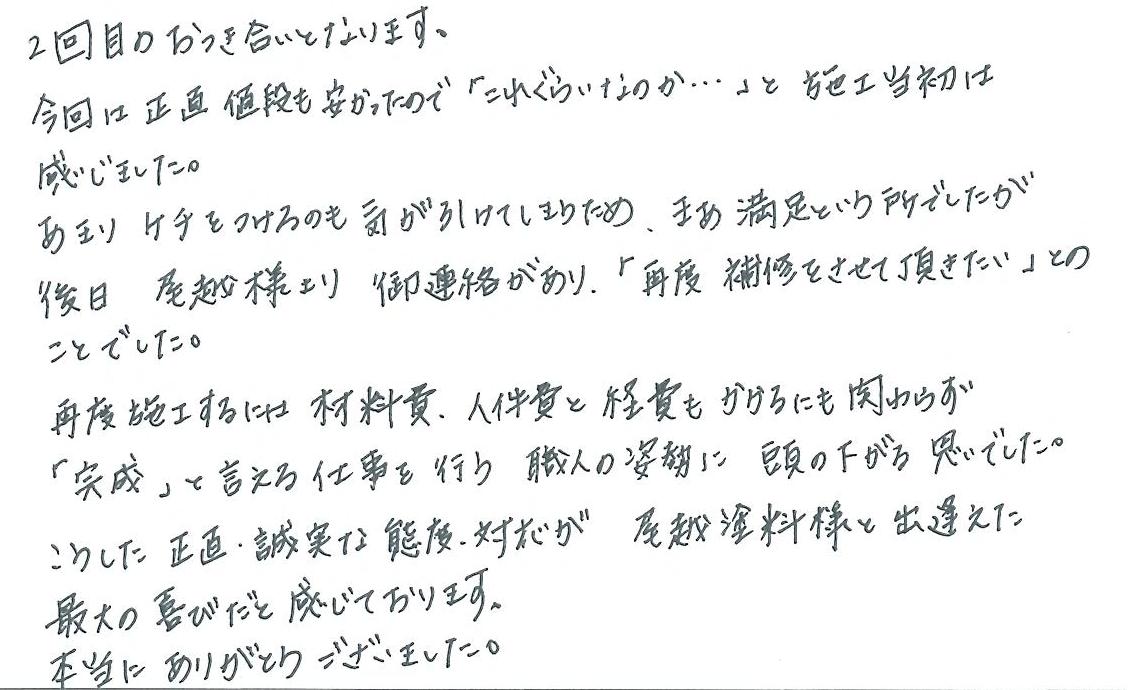 2回目のおつき合いとなります。
今回は正直値段も安かったので「これぐらいなのか…」と施工当初は
感じました。
あまりケチをつけるのも気が引けてしまうため、まあ満足という所でしたが
後日 尾越様より 御連絡があり、「再度 補修をさせて頂きたい」との
ことでした。
再度施工するには 材料費、人件費と経費もかけるにも関わらず
「完成」と言える仕事を行う 職人の姿勢に 頭の下がる思いでした。
こうした正直・誠実な態度・対応が 尾越塗料様と出逢えた
最大の喜びだと感じております。
本当にありがとうございました。